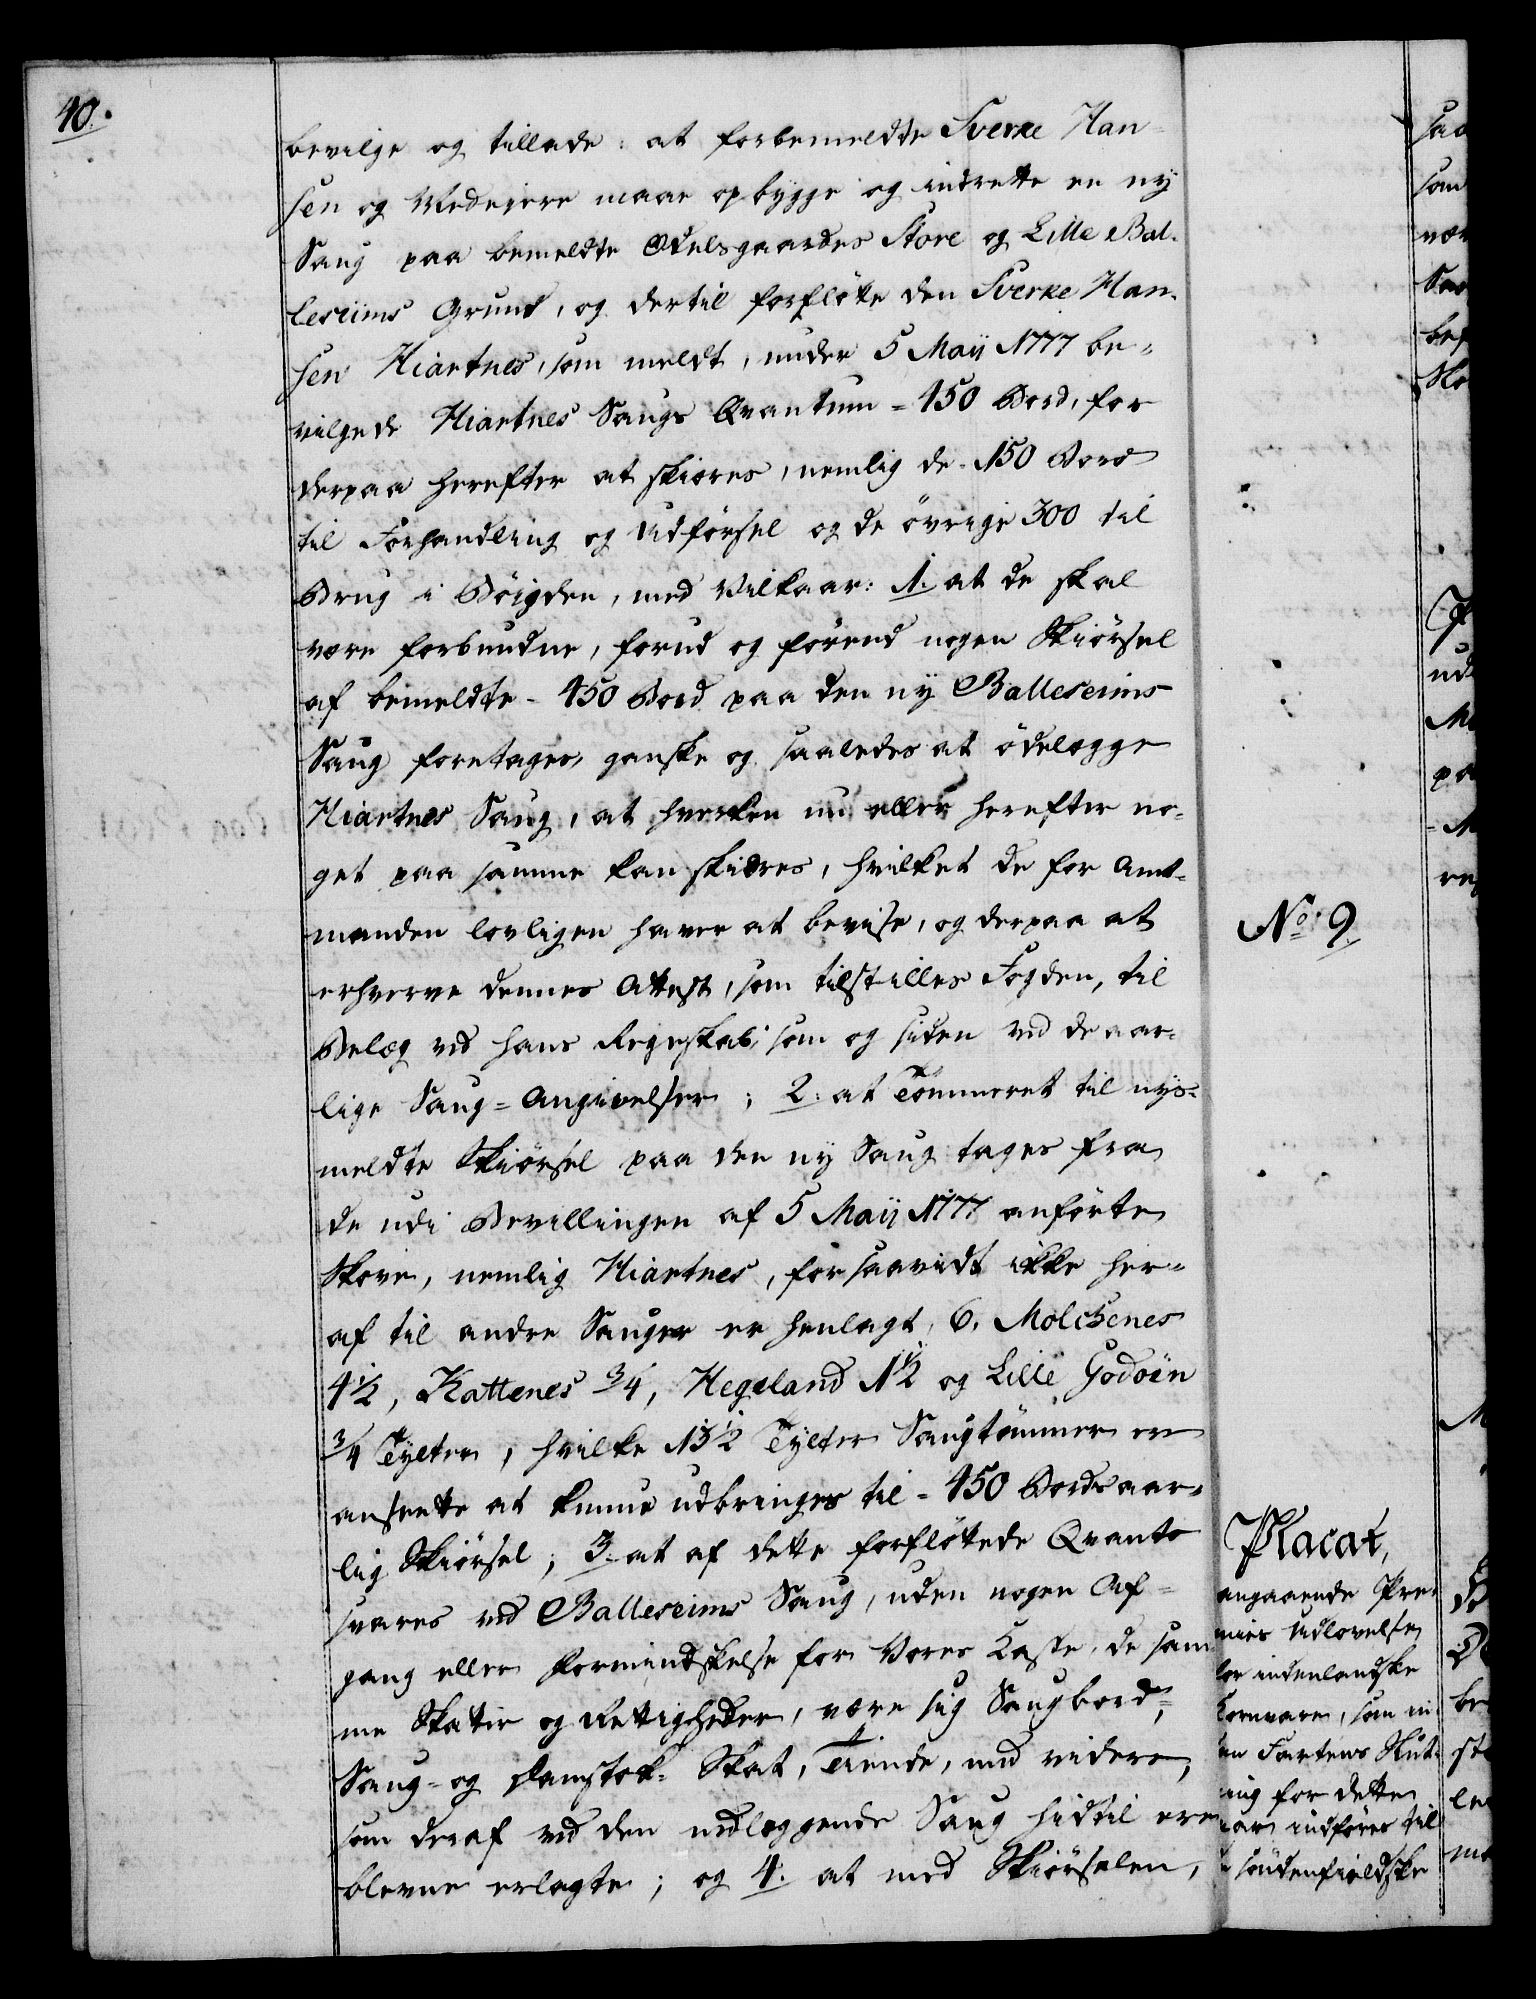 40.
bevilge og tillade: at forbemeldte Sverke Han-
sen og Medeiere maae opbygge og indrette en nÿ
Saug paa bemeldte Odelsgaardes Store og Lille Bal-
lesriims Grund, og dertil forflötte den Sverke Han-
sen Hiartnes, som meldt, under 5 Maÿ 1777 be-
vilgede Hiartnes Saugs Qvantum = 450 Bord, for
derpaa herefter at skiæres, nemlig de 150 Bord
til Forhandling og Udförsel og de övrige 300 til
Brug i Böigden, med Vilkaar: 1. at de skal
være forbundne, forud og förend nogen Skiörsel
af bemeldte = 450 Bord paa den nÿ Ballesriims
Saug foretages, ganske og saaledes at ödelegge
Hiartnes Saug, at hverken nu eller herefter no-
get paa samme kan skiæres, hvilket de for Amt-
manden lovligen haver at bevise, og derpaa at
erhverve dennes Attest, som tilstilles Fogden, til
Belæg ved hans Regnskab, som og siden ved de aar-
lige Saug-Angivelser; 2. at Tömmeret til nÿs-
meldte Skiörsel paa den nÿ Saug tages fra
de udi Bevillingen af 5 Maÿ 1777 anförte
Skove, nemlig Hiartnes, forsaavidt ikke her-
af til andre Sauger er henlagt, 6, Molchenes
4½, Kattenes ¾, Hegeland 1½ og Lille Godöen
¾ Tÿlter, hvilke 13½ Tÿlter Saugtömmer er
ansette at kunne udbringes til = 450 Bords aar-
lig Skiörsel; 3. at af dette forflöttede Qvanto
svares ved Ballesriims Saug, uden nogen Af-
gang eller Formindskelse for Vores Casse, de sam-
me Skatter og Rettigheder, være sig Saugbord-,
Saug- og Damstok-Skat, Tiende, med videre,
som deraf ved den nedlæggende Saug hidtil ere
blevne erlagte; og 4. at med Skiörselen,
No. 9.
Placat,
angaaende Præ-
mies Udlovelse
for indenlandske
Kornvare, som in-
den Fartens Slut-
ning for dette
Aar indföres til
söndenfieldske